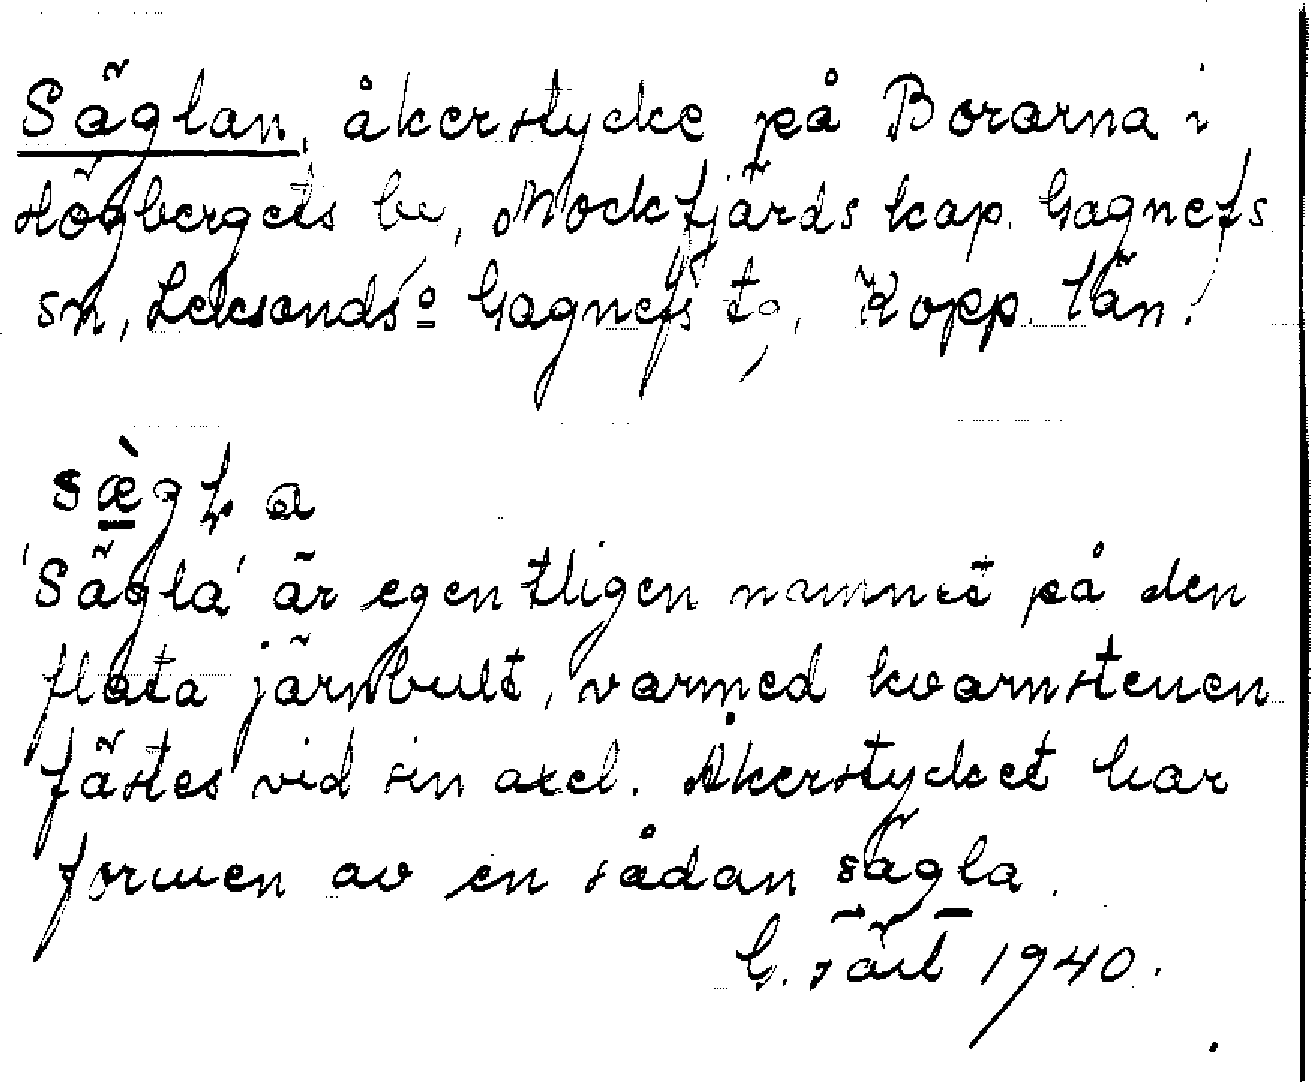 Säglan, åkerstycke på Bororna i
Högbergets by, Mockfjärds kap. Gagnefs
sn, Leksands o Gagnefs tg, Kopp. län.
sæ̀gla
'Sägla' är egentligen namnet på den
flata järnbult, varmed kvarnstenen
fästes vid sin axel. Åkerstycket har
formen av en sådan sägla.
G. 1940.